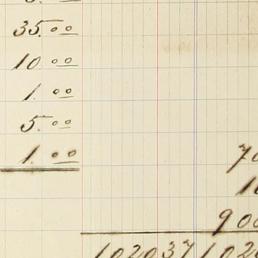 35.00
10.00
1.00
5.00
1.00
70
10
900
102037 1020